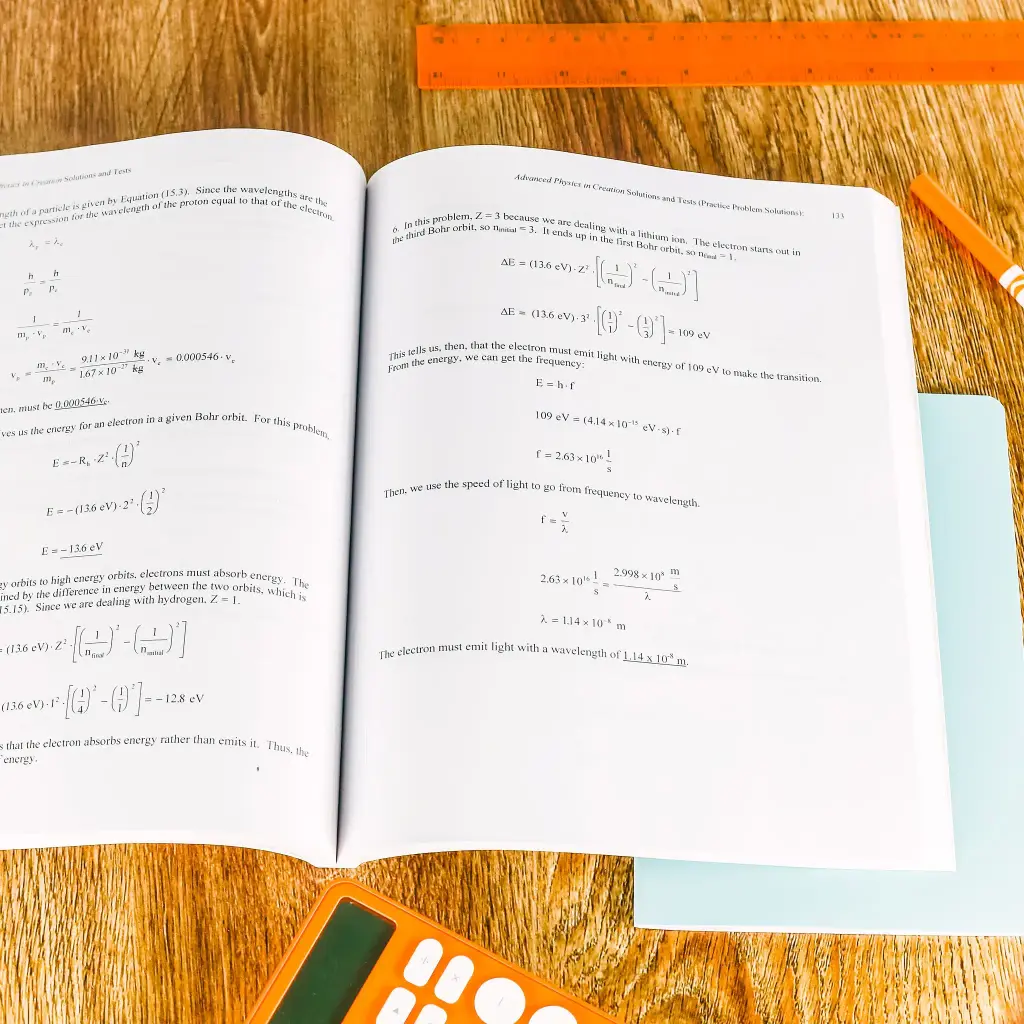 Physics in Creation Solutions and Tests
ngth of a particle is given by Equation (15.3). Since the wavelengths are the
et the expression for the wavelength of the proton equal to that of the electron.
λₚ = λₑ
h/pₚ = h/pₑ
1/(mₚ · vₚ) = 1/(mₑ · vₑ)
vₚ = (mₑ · vₑ)/mₚ = (9.11 × 10⁻³¹ kg)/(1.67 × 10⁻²⁷ kg) · vₑ = 0.000546 · vₑ
hen, must be 0.000546·vₑ.
ves us the energy for an electron in a given Bohr orbit. For this problem,
E = −Rₕ · Z² · (1/n)²
E = −(13.6 eV) · 2² · (1/2)²
E = −13.6 eV
gy orbits to high energy orbits, electrons must absorb energy. The
ined by the difference in energy between the two orbits, which is
15.15). Since we are dealing with hydrogen, Z = 1.
= (13.6 eV) · Z² · [(1/n final)² − (1/n initial)²]
(13.6 eV) · 1² · [(1/4)² − (1/1)²] = −12.8 eV
s that the electron absorbs energy rather than emits it. Thus, the
energy.
Advanced Physics in Creation Solutions and Tests (Practice Problem Solutions): 133
6. In this problem, Z = 3 because we are dealing with a lithium ion. The electron starts out in
the third Bohr orbit, so n initial = 3. It ends up in the first Bohr orbit, so n final = 1.
ΔE = (13.6 eV) · Z² · [(1/n final)² − (1/n initial)²]
ΔE = (13.6 eV) · 3² · [(1/1)² − (1/3)²] = 109 eV
This tells us, then, that the electron must emit light with energy of 109 eV to make the transition.
From the energy, we can get the frequency:
E = h · f
109 eV = (4.14 × 10⁻¹⁵ eV · s) · f
f = 2.63 × 10¹⁶ 1/s
Then, we use the speed of light to go from frequency to wavelength.
f = v/λ
2.63 × 10¹⁶ 1/s = (2.998 × 10⁸ m/s)/λ
λ = 1.14 × 10⁻⁸ m
The electron must emit light with a wavelength of 1.14 x 10⁻⁸ m.